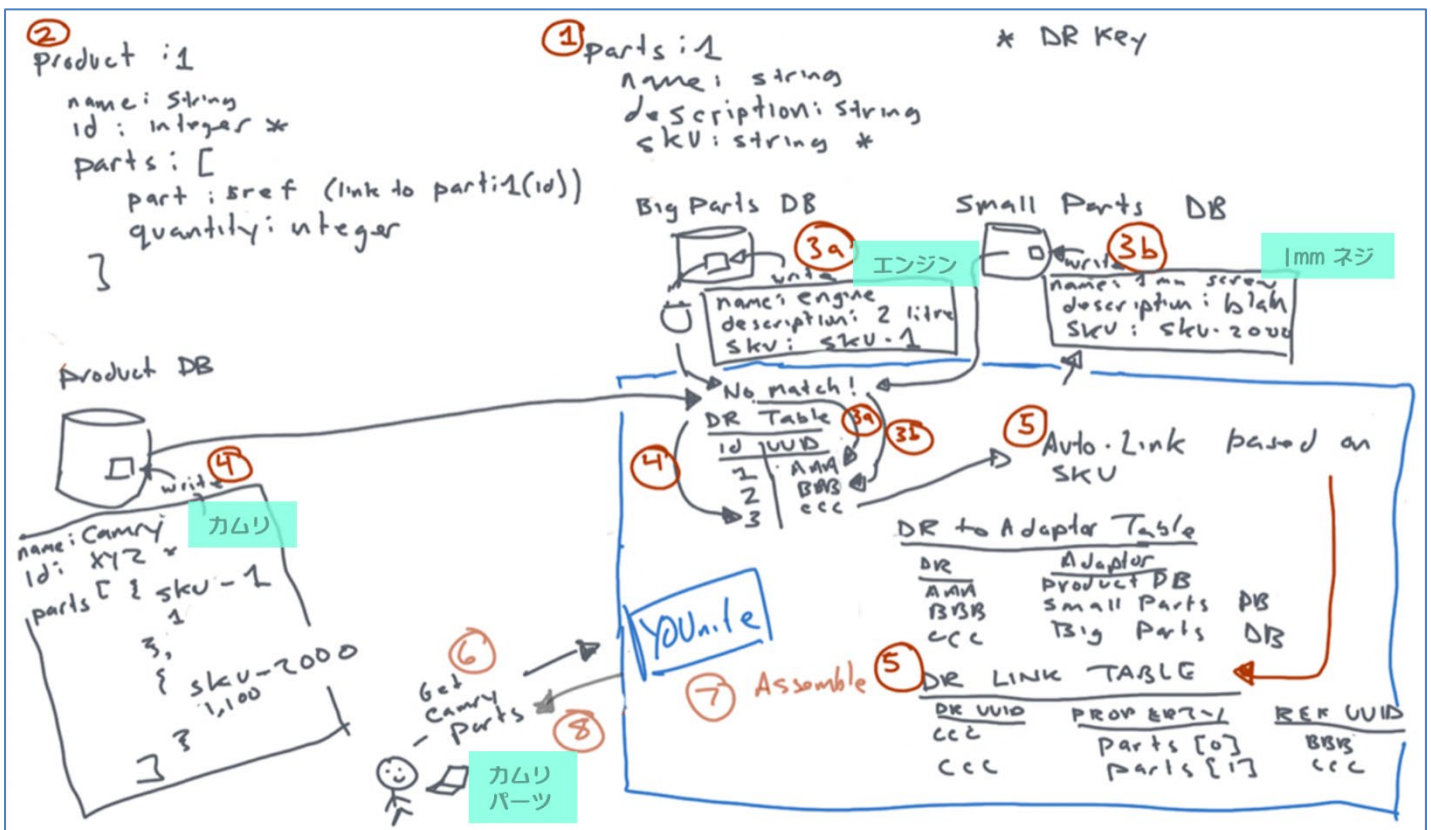 2
product : 1
name: string
id : integer *
parts : [
part : $ref (link to part:1(id))
quantity: integer
]
1
parts : 1
name: string
description: string
sku: string *
* DR Key
Big Parts DB
3a
エンジン
write
name: engine
description: 2 litre
sku: sku-1
Small Parts DB
3b
1mm ネジ
write
name: 1 mm screw
description: blah
sku: sku-2000
Product DB
4
write
カムリ
name: Camry
id: XYZ *
parts [ { sku-1
1
},
{ sku-2000
1,100
}
]
No match!
DR Table
3a
3b
id UUID
4
1 AAA
2 BBB
3 CCC
5
Auto-Link based on
SKU
DR to Adaptor Table
DR Adaptor
AAA Product DB
BBB Small Parts DB
CCC Big Parts DB
YOUnite
6
Get
Camry
Parts
7 Assemble
8
カムリ
パーツ
5
DR LINK TABLE
DR UUID PROPERTY REF UUID
CCC parts [0] BBB
CCC parts [1] CCC